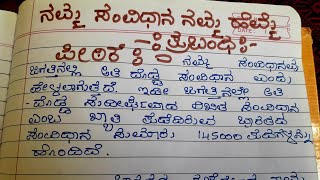 ನಮ್ಮ ಸಂವಿಧಾನ ನಮ್ಮ ಹೆಮ್ಮೆ
ಪ್ರಬಂಧ
ಪೀಠಿಕೆ :- ನಮ್ಮ ಸಂವಿಧಾನವು
ಜಗತ್ತಿನಲ್ಲಿ ಅತಿ ದೊಡ್ಡ ಸಂವಿಧಾನ ಎಂದು
ಹೇಳಲಾಗುತ್ತದೆ. ಇಡೀ ಜಗತ್ತಿನಲ್ಲೇ ಅತಿ
ದೊಡ್ಡ ಲಿಖಿತ ಸಂವಿಧಾನ
ಎಂಬ ಖ್ಯಾತಿ ಪಡೆದಿರುವ ಭಾರತದ
ಸಂವಿಧಾನ ಸುಮಾರು 145000 ಪದಗಳನ್ನು
ಹೊಂದಿದೆ.